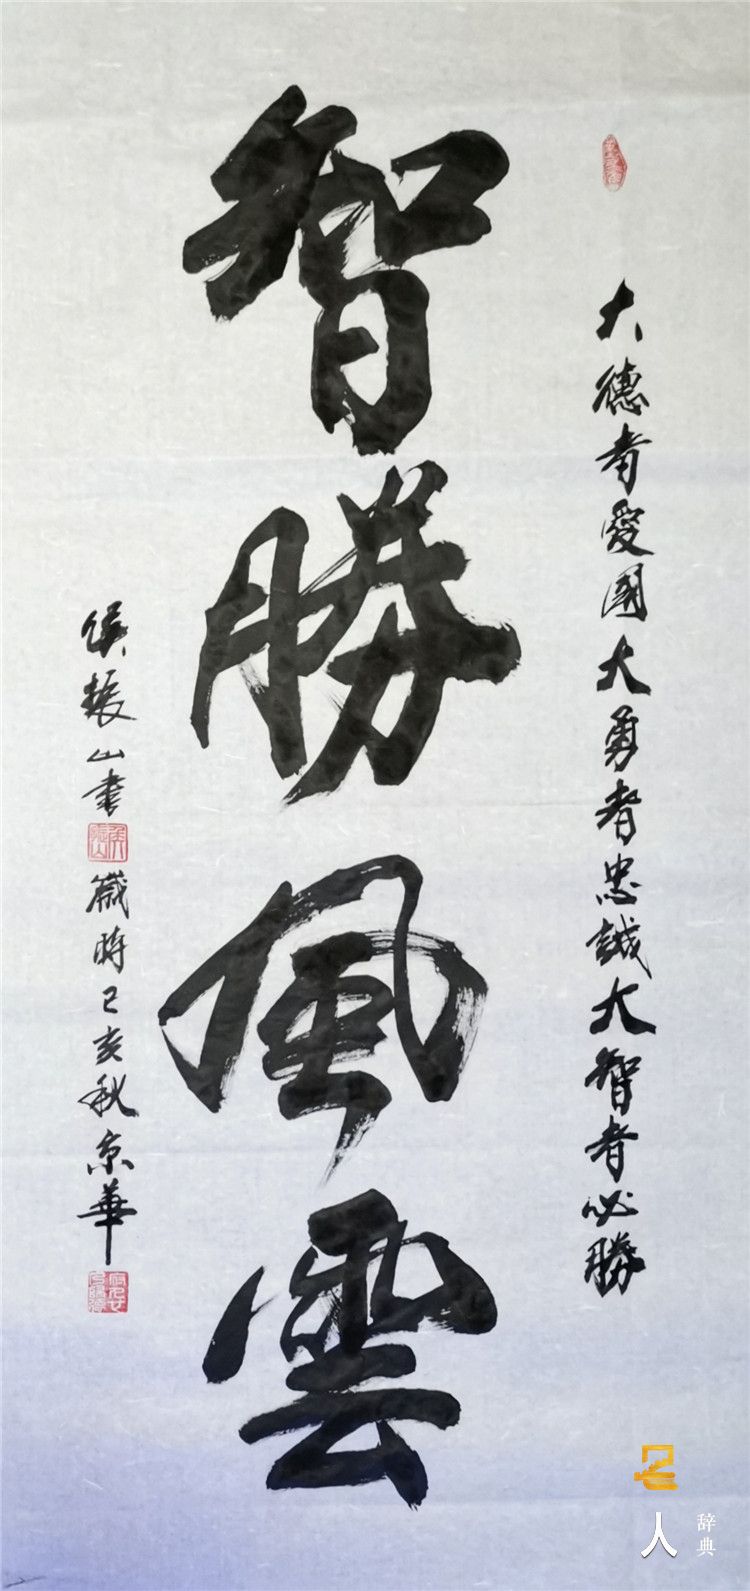 大德者愛國大勇者忠誠大智者必勝
智勝風雲
侯振山書
箴時己亥秋京華
名人
辞典